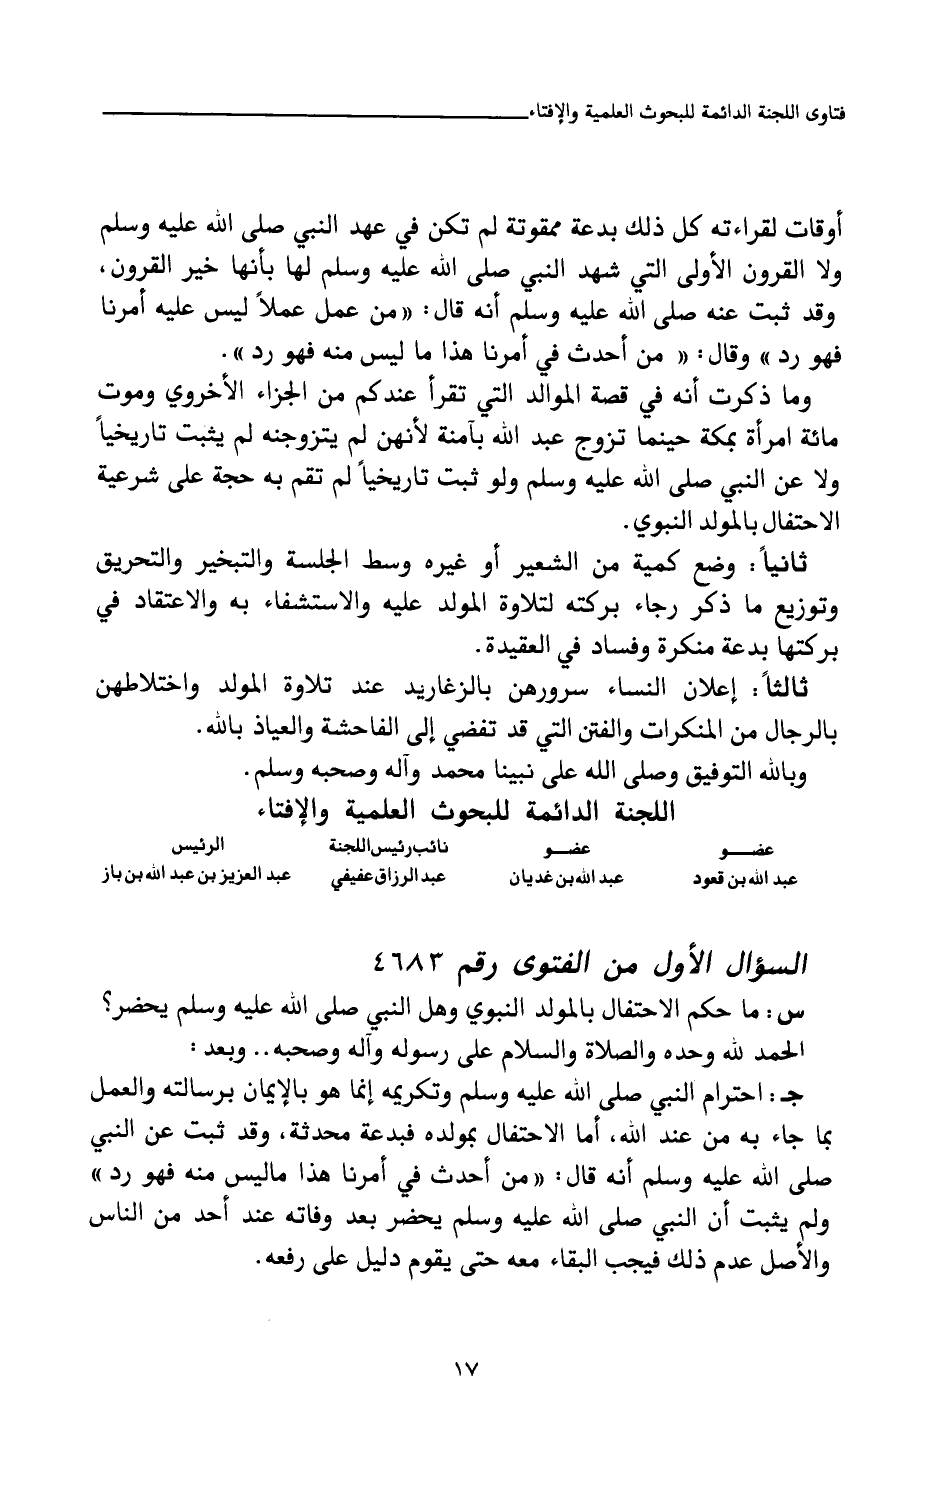 فتاوى اللجنة الدائمة للبحوث العلمية والإفتاء
أوقات لقراءته كل ذلك بدعة ممقوتة لم تكن في عهد النبي صلى الله عليه وسلم
ولا القرون الأولى التي شهد النبي صلى الله عليه وسلم لها بأنها خير القرون،
وقد ثبت عنه صلى الله عليه وسلم أنه قال: «من عمل عملاً ليس عليه أمرنا
فهو رد» وقال: « من أحدث في أمرنا هذا ما ليس منه فهو رد».
وما ذكرت أنه في قصة الموالد التي تقرأ عندكم من الجزاء الأخروي وموت
مائة امرأة بمكة حينما تزوج عبد الله بآمنة لأنهن لم يتزوجنه لم يثبت تاريخياً
ولا عن النبي صلى الله عليه وسلم ولو ثبت تاريخياً لم تقم به حجة على شرعية
الاحتفال بالمولد النبوي.
ثانياً: وضع كمية من الشعير أو غيره وسط الجلسة والتبخير والتحريق
وتوزيع ما ذكر رجاء بركته لتلاوة المولد عليه والاستشفاء به والاعتقاد في
بركتها بدعة منكرة وفساد في العقيدة.
ثالثاً: إعلان النساء سرورهن بالزغاريد عند تلاوة المولد واختلاطهن
بالرجال من المنكرات والفتن التي قد تفضي إلى الفاحشة والعياذ بالله.
وبالله التوفيق وصلى الله على نبينا محمد وآله وصحبه وسلم.
اللجنة الدائمة للبحوث العلمية والإفتاء
عضـــو عضـــو نائب رئيس اللجنة الرئيس
عبد الله بن قعود عبد الله بن غديان عبد الرزاق عفيفي عبد العزيز بن عبد الله بن باز
السؤال الأول من الفتوى رقم ٤٦٨٣
س: ما حكم الاحتفال بالمولد النبوي وهل النبي صلى الله عليه وسلم يحضر؟
الحمد لله وحده والصلاة والسلام على رسوله وآله وصحبه.. وبعد:
جـ: احترام النبي صلى الله عليه وسلم وتكريمه إنما هو بالإيمان برسالته والعمل
بما جاء به من عند الله، أما الاحتفال بمولده فبدعة محدثة، وقد ثبت عن النبي
صلى الله عليه وسلم أنه قال: «من أحدث في أمرنا هذا ماليس منه فهو رد»
ولم يثبت أن النبي صلى الله عليه وسلم يحضر بعد وفاته عند أحد من الناس
والأصل عدم ذلك فيجب البقاء معه حتى يقوم دليل على رفعه.
١٧